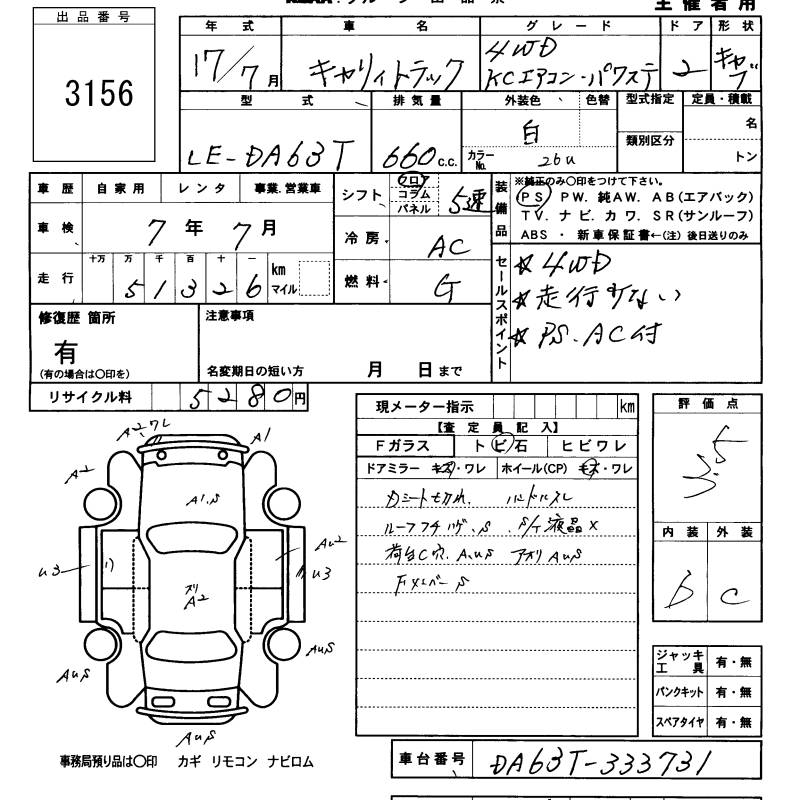 出品番号
3156
主催者用
年式 車名 グレード ドア 形状
17/7月 キャリイトラック 4WD KCエアコン・パワステ 2 キャブ
型式 排気量 外装色 色替 型式指定 定員・積載
LE-DA63T 660 c.c. 白 カラーNo. 26U 類別区分 名 トン
車歴 自家用 レンタ 事業.営業車
車検 7年7月
走行 十万 万 千 百 十 一
51326 km マイル
シフト フロア コラム パネル 5速
冷房 AC
燃料 G
装備品
※純正のみ〇印をつけて下さい。
PS PW. 純AW. AB(エアバック)
TV. ナビ. カワ. SR(サンルーフ)
ABS ・ 新車保証書←(注) 後日送りのみ
セールスポイント
☆ 4WD
☆ 走行少ない
☆ PS. AC付
修復歴 箇所
有
(有の場合は〇印を)
注意事項
名変期日の短い方 月 日まで
リサイクル料 5280円
現メーター指示 km
【査定員記入】
Fガラス トビ石 ヒビワレ
ドアミラー キズ・ワレ ホイール(CP) キズ・ワレ
Dシート切れ. ハンドルスレ
ルーフフチハゲ. S
液晶 X
荷台C穴. AUS アオリ AUS
Fメンバー S
評価点
3.5
内装 外装
b c
ジャッキ工具 有・無
パンクキット 有・無
スペアタイヤ 有・無
A1
A2
A1.S
AU2
U3
U3
A2
AUS
AUS
AUS
事務局預り品は〇印 カギ リモコン ナビロム
車台番号 DA63T-333731